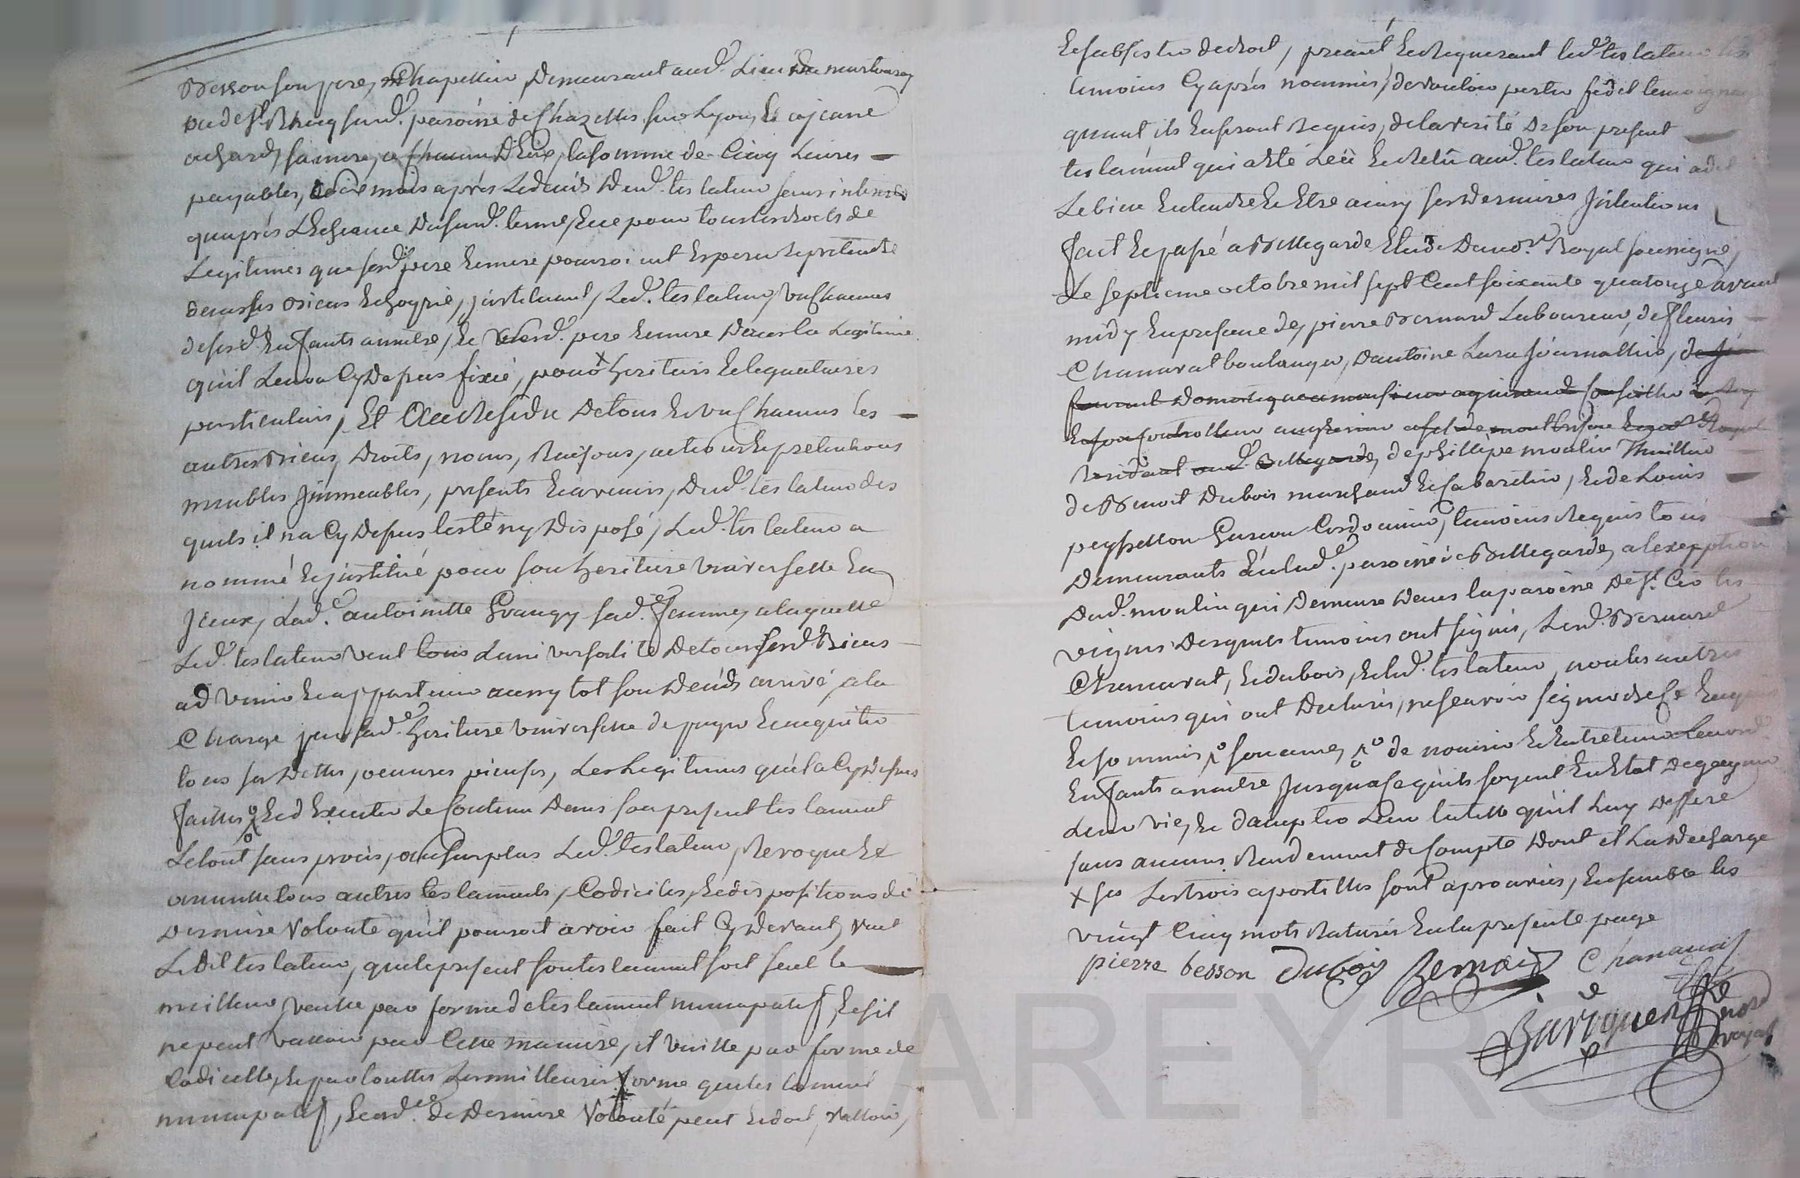 Besson son pere, Chapellier, Demeurant aud. Lieu
ou de St. parroisse de Chazelles sur Lyon, & a jeanne
sa mere, a chacun D'Eux, la somme de Cinq Livres
payables, mois après Le deces Dud. testateur sans interets
qu'après L'Echeance Dusud. terme, & ce pour tous les droits de
Legitimes que sesd. pere & mere pourroient Esperer & pretendre
dans ses Biens & hoyrie, jnstituant, Led. testateur, un chacuns
desesd. Enfants a naitre, & sesd. pere & mere Dans la Legitime
qu'il Leur a Cy Depuis fixée, pour heritiers & legataires
particuliers, Et Au Residu De tous & un chacuns ses
autres Biens, Droits, noms, Raisons, actions & pretentions
meubles jmmeubles, presents & avenirs, Dud. testateur des
quels il n'a Cy Depuis testé ny Disposé, Led. testateur a
nommé & jnstitué pour son heritiere universelle En
jceux, Lad. antoinette Grangy sad. femme, a laquelle
Led. testateur veut L'universalité De tous sesd. Biens
advenir & appartenir aussy tot son Deceds arrivé, a la
Charge par sad. heritiere universelle de payer & acquitter
tous ses Dettes, oeuvres pieuses, Les Legitimes qu'il a Cy Depuis
faittes & d'Executer Le Contenu Dans son present testament
Le tout sans procès, au surplus Led. testateur, Revoque &
annulle tous autres testaments, Codiciles, & dispositions de
Derniere Volonté qu'il pourroit avoir fait Cy Devant, veut
Le Dit testateur, que le present son testament soit seul le
meilleur, veuille par forme de testament nuncupatif, & s'il
ne peut valloir par Cette maniere, il vaille par forme de
Codicille, & par touttes Les meilleures forme que testament
nuncupatif, & ord.ce de Derniere Volonté peut & doit, valloir,
& subsister de droit, priant & Requerant led. testateur les
temoins Cy après nommés, de vouloir porter fidel temoignage
quant ils En seront Requis, de la verité De son present
testament qui a Eté Leü & Relü aud. testateur qui a dit
Le bien Entendre & Etre ainsy ses Dernieres Jntentions
fait & passé a Bellegarde Etude Dud. no.re Royal soussigné,
Le septieme octobre mil sept Cent soixante quatorze avant
midy En presence de, pierre Bernard Laboureur, de fleuris
Chamarat boulanger, D'antoine Journallier,
de phillipe moulin
de Benoit Dubois marchand & Cabaretier, & de Louis
peyssellon Garcon Cordonnier, temoins Requis tous
Demeurants aud. parroisse Bellegarde, a l'exception
Dud. moulin qui Demeure Dans la parroisse De St.
vignes Desquels temoins ont signés, Lesd. Bernard
Chamarat, & dubois, & led. testateur, non les autres
temoins qui ont Declarés, ne scavoir signer de ce Enquis
& sommés son ame, de nourrir & Entretenir
Enfants a naitre jusqu'a ce qu'ils soyent En Etat De gagner
Leur vie, & d'accepter Leur tutelle qu'il Luy Deffere
sans aucuns Rendement de Compte Dont il La Decharge
Les trois apostilles sont aprouvées, Ensemble les
vingt Cinq mots Raturés En la presente page
pierre besson Dubois Bernard Chamarat